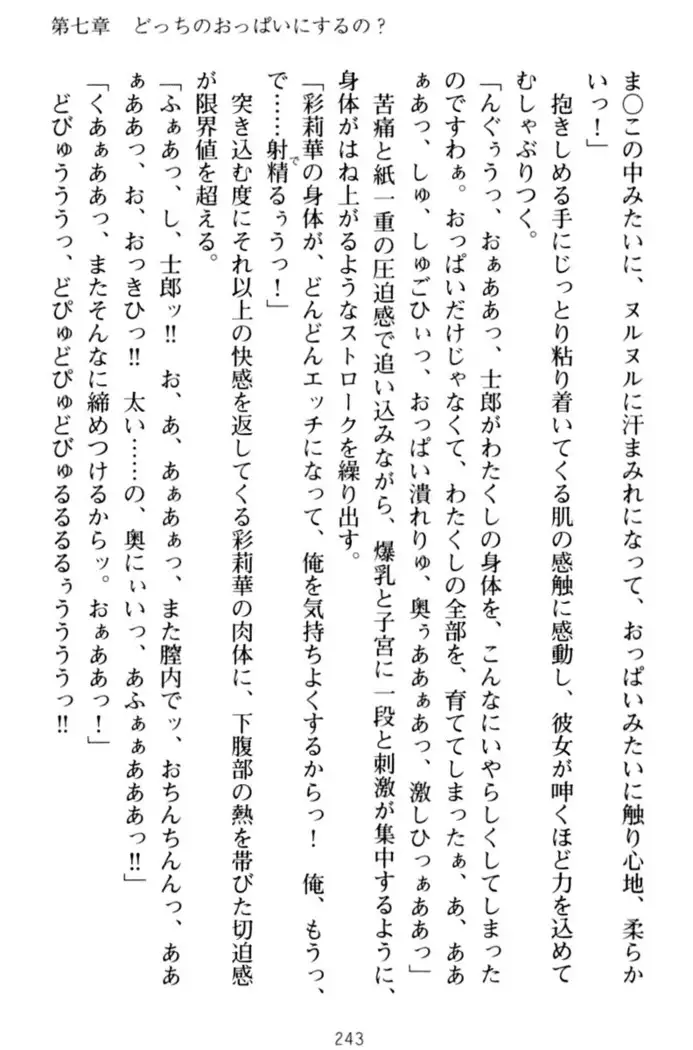 第七章　どっちのおっぱいにするの？
ま〇この中みたいに、ヌルヌルに汗まみれになって、おっぱいみたいに触り心地、柔らか
いっ！」
抱きしめる手にじっとり粘り着いてくる肌の感触に感動し、彼女が呻くほど力を込めて
むしゃぶりつく。
「んぐぅうっ、おぁああっ、士郎がわたくしの身体を、こんなにいやらしくしてしまった
のですわぁ。おっぱいだけじゃなくて、わたくしの全部を、育ててしまったぁ、あ、ああ
ぁあっ、しゅ、しゅごひぃっ、おっぱい潰れりゅ、奥ぅああぁあっ、激しひっぁああっ」
苦痛と紙一重の圧迫感で追い込みながら、爆乳と子宮に一段と刺激が集中するように、
身体がはね上がるようなストロークを繰り出す。
「彩莉華の身体が、どんどんエッチになって、俺を気持ちよくするからっ！　俺、もうっ、
で……射精るぅうっ！」
で
突き込む度にそれ以上の快感を返してくる彩莉華の肉体に、下腹部の熱を帯びた切迫感
が限界値を超える。
「ふぁあっ、し、士郎ッ!!　お、あ、あぁあぁっ、また膣内でッ、おちんちんんっ、ああ
ぁああっ、お、おっきひっ!!　太い……の、奥にぃいっ、あふぁぁあああっ!!」
「くあぁああっ、またそんなに締めつけるからッ。おぁああっ！」
どぴゅうううっ、どぴゅどぴゅどびゅるるるるぅううううっ!!
243